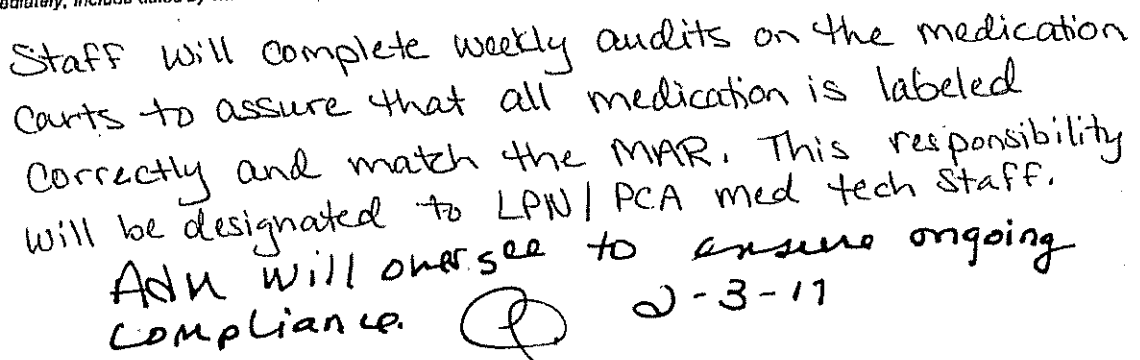 Staff will complete weekly audits on the medication
carts to assure that all medication is labeled
correctly and match the MAR. This responsibility
will be designated to LPN / PCA med tech staff.
will oversee to ensure ongoing
compliance. 2-3-17